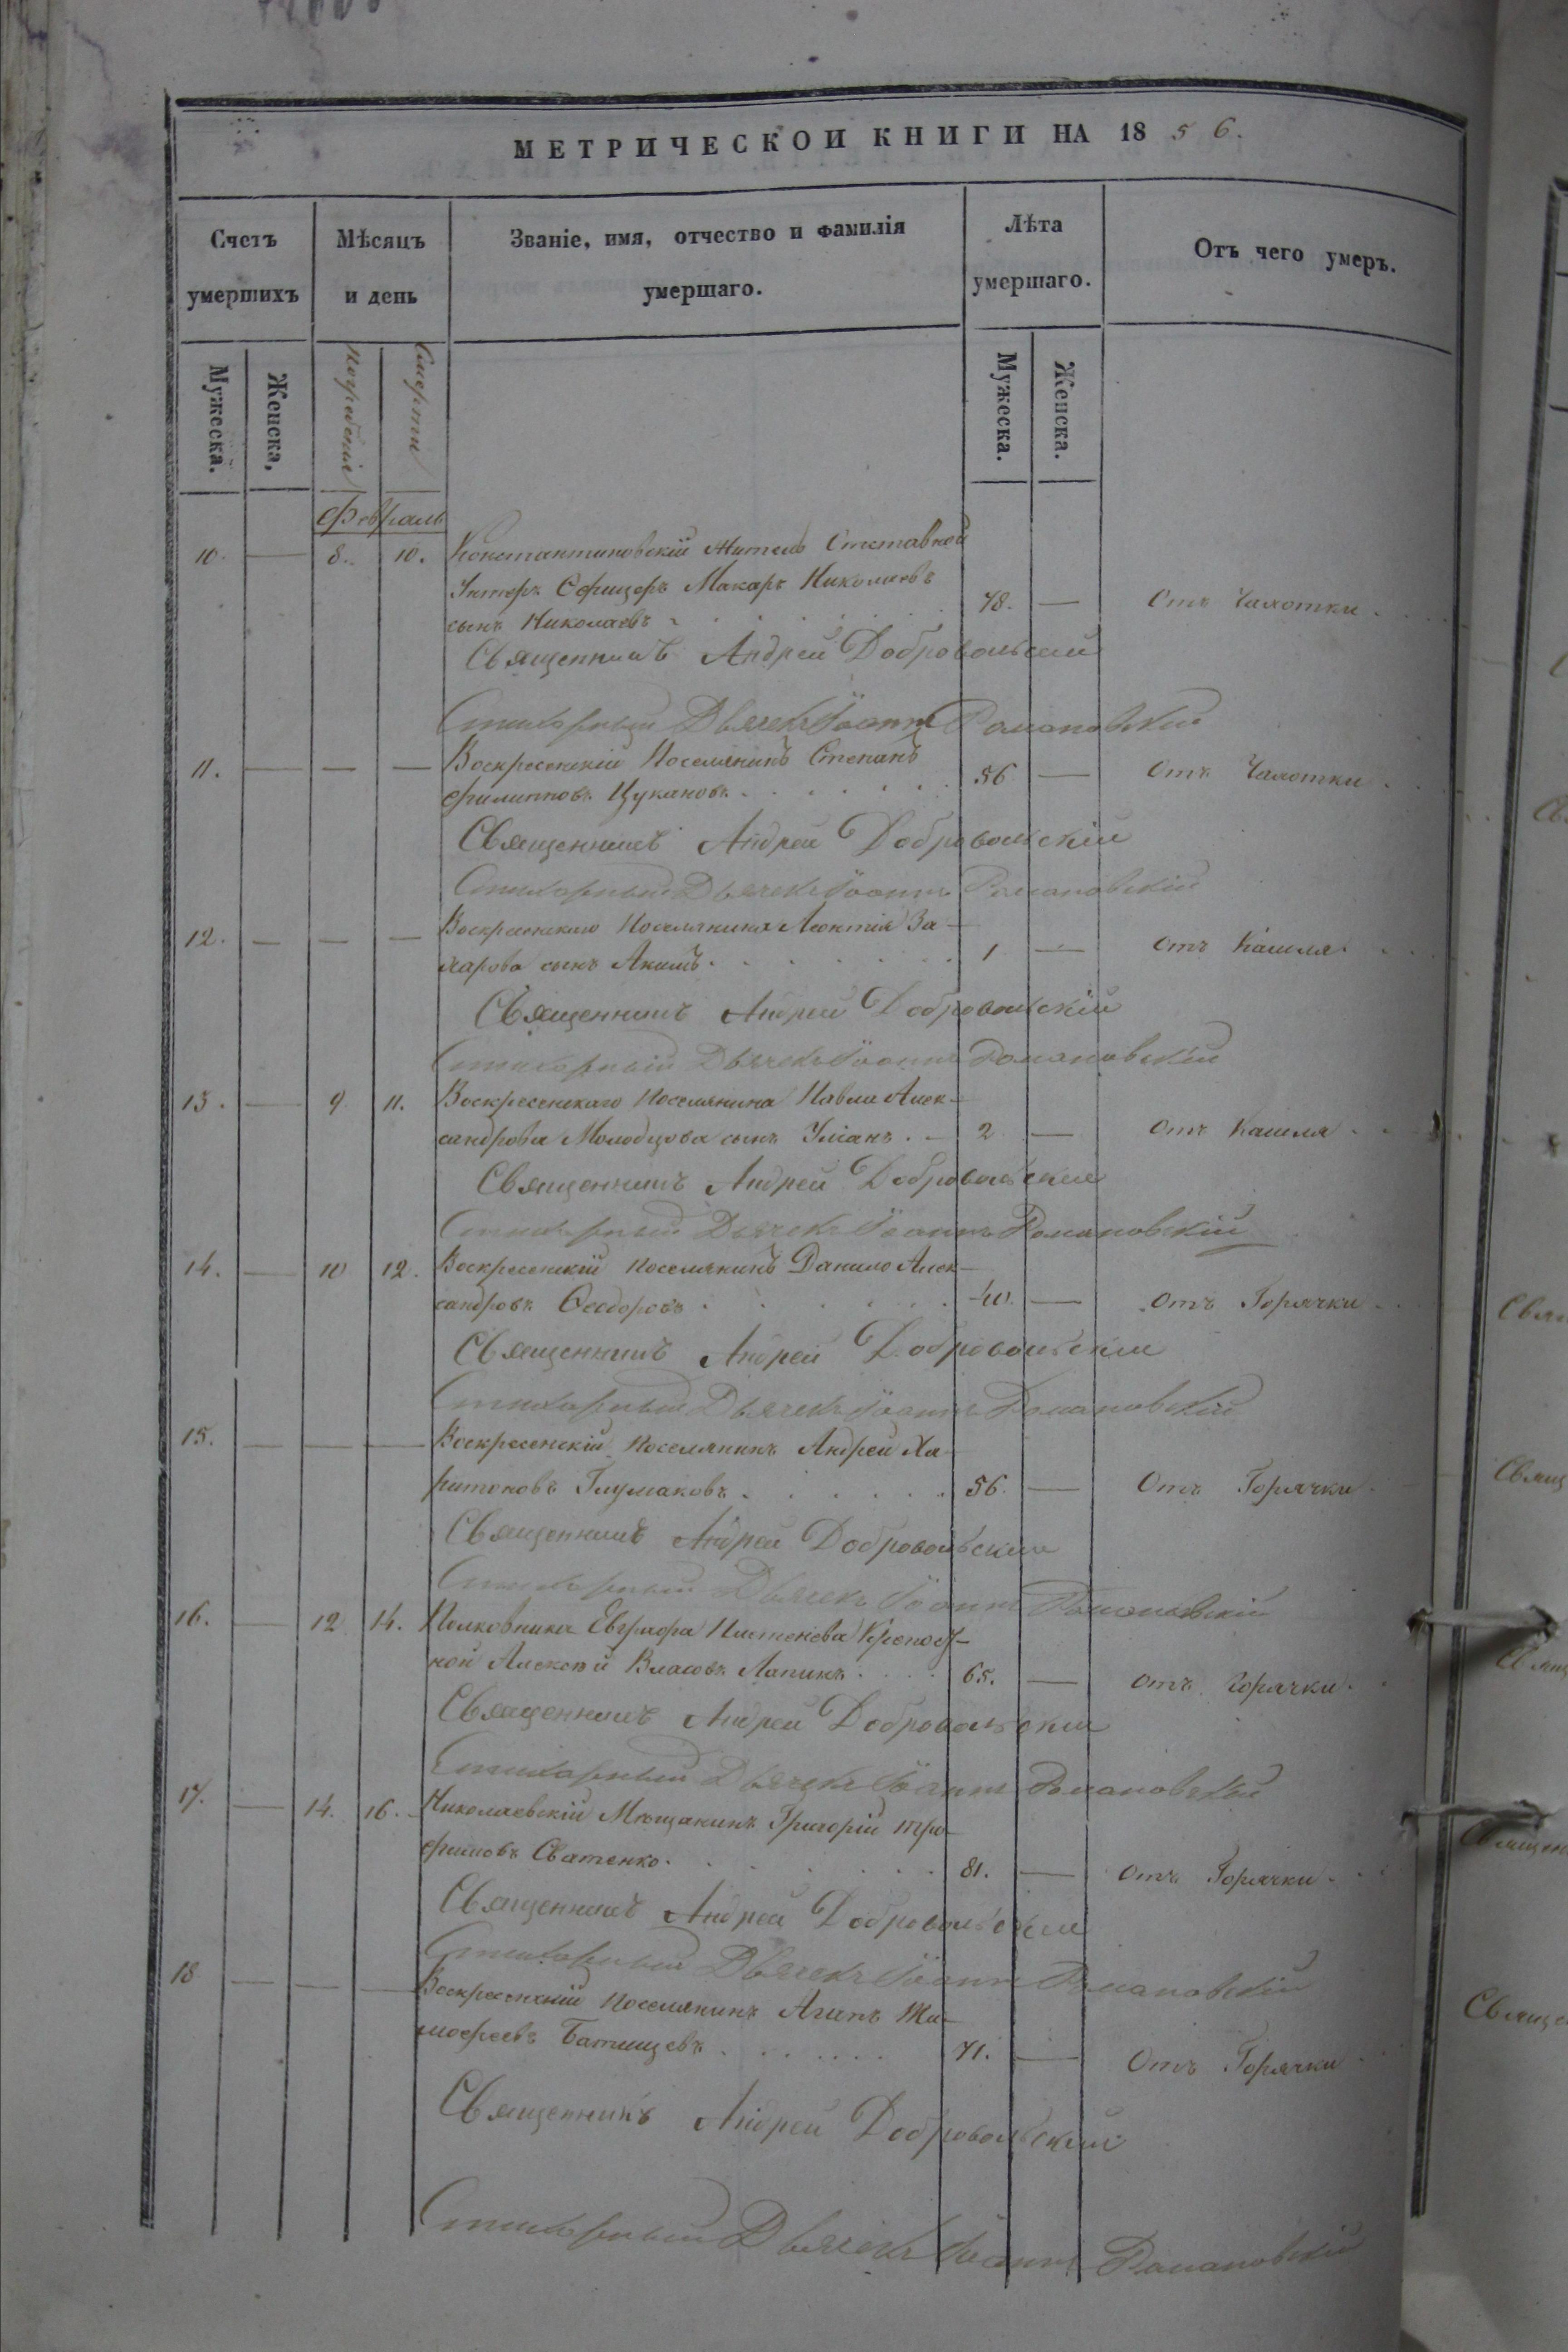 МЕТРИЧЕСКОЙ КНИГИ НА 1856.
Счетъ умершихъ
Мѣсяцъ и день
Званіе, имя, отчество и фамилія умершаго.
Лѣта умершаго.
Отъ чего умеръ.
Мужеска. Женска. погребенія Смерти Мужеска. Женска.
Февраль
10. — 8. 10. Константиновскій житель Отставной
Унтеръ Офицеръ Макаръ Николаевъ
сынъ Николаевъ 78. — Отъ Чахотки
Священникъ Андрей Добровольскій
Стихарный Дьячекъ Іоаннъ Романовскій
11. — — — Воскресенскій Поселянинъ Степанъ
Филиповъ Цукановъ 56 — Отъ Чахотки
Священникъ Андрей Добровольскій
Стихарный Дьячекъ Іоаннъ Романовскій
12. — — — Воскресенскаго Поселянина Леонтія За-
харова сынъ Акимъ 1 — Отъ Кашля
Священникъ Андрей Добровольскій
Стихарный Дьячекъ Іоаннъ Романовскій
13. — 9 11. Воскресенскаго Поселянина Павла Алек-
сандрова Молодцова сынъ Уліанъ 2 — Отъ Кашля
Священникъ Андрей Добровольскій
Стихарный Дьячекъ Іоаннъ Романовскій
14. — 10 12. Воскресенскій поселянинъ Данило Алек-
сандровъ Ѳеодоровъ 40. — Отъ Горячки
Священникъ Андрей Добровольскій
Стихарный Дьячекъ Іоаннъ Романовскій
15. — — — Воскресенскій Поселянинъ Андрей Ха-
ритоновъ Глумаковъ 56 — Отъ Горячки
Священникъ Андрей Добровольскій
Стихарный Дьячекъ Іоаннъ Романовскій
16. — 12 14. Полковника Евграфа Крепост-
ной Алексѣй Власовъ Лапинъ 65. — Отъ Горячки
Священникъ Андрей Добровольскій
Стихарный Дьячекъ Іоаннъ Романовскій
17. — 14. 16. Николаевскій Мѣщанинъ Григорій Тро-
фимовъ Сватенко 81. — Отъ Горячки
Священникъ Андрей Добровольскій
Стихарный Дьячекъ Іоаннъ Романовскій
18 — — — Воскресенскій Поселянинъ Агапъ Ти-
мофеевъ Батищевъ 71. — Отъ Горячки
Священникъ Андрей Добровольскій
Стихарный Дьячекъ Іоаннъ Романовскій